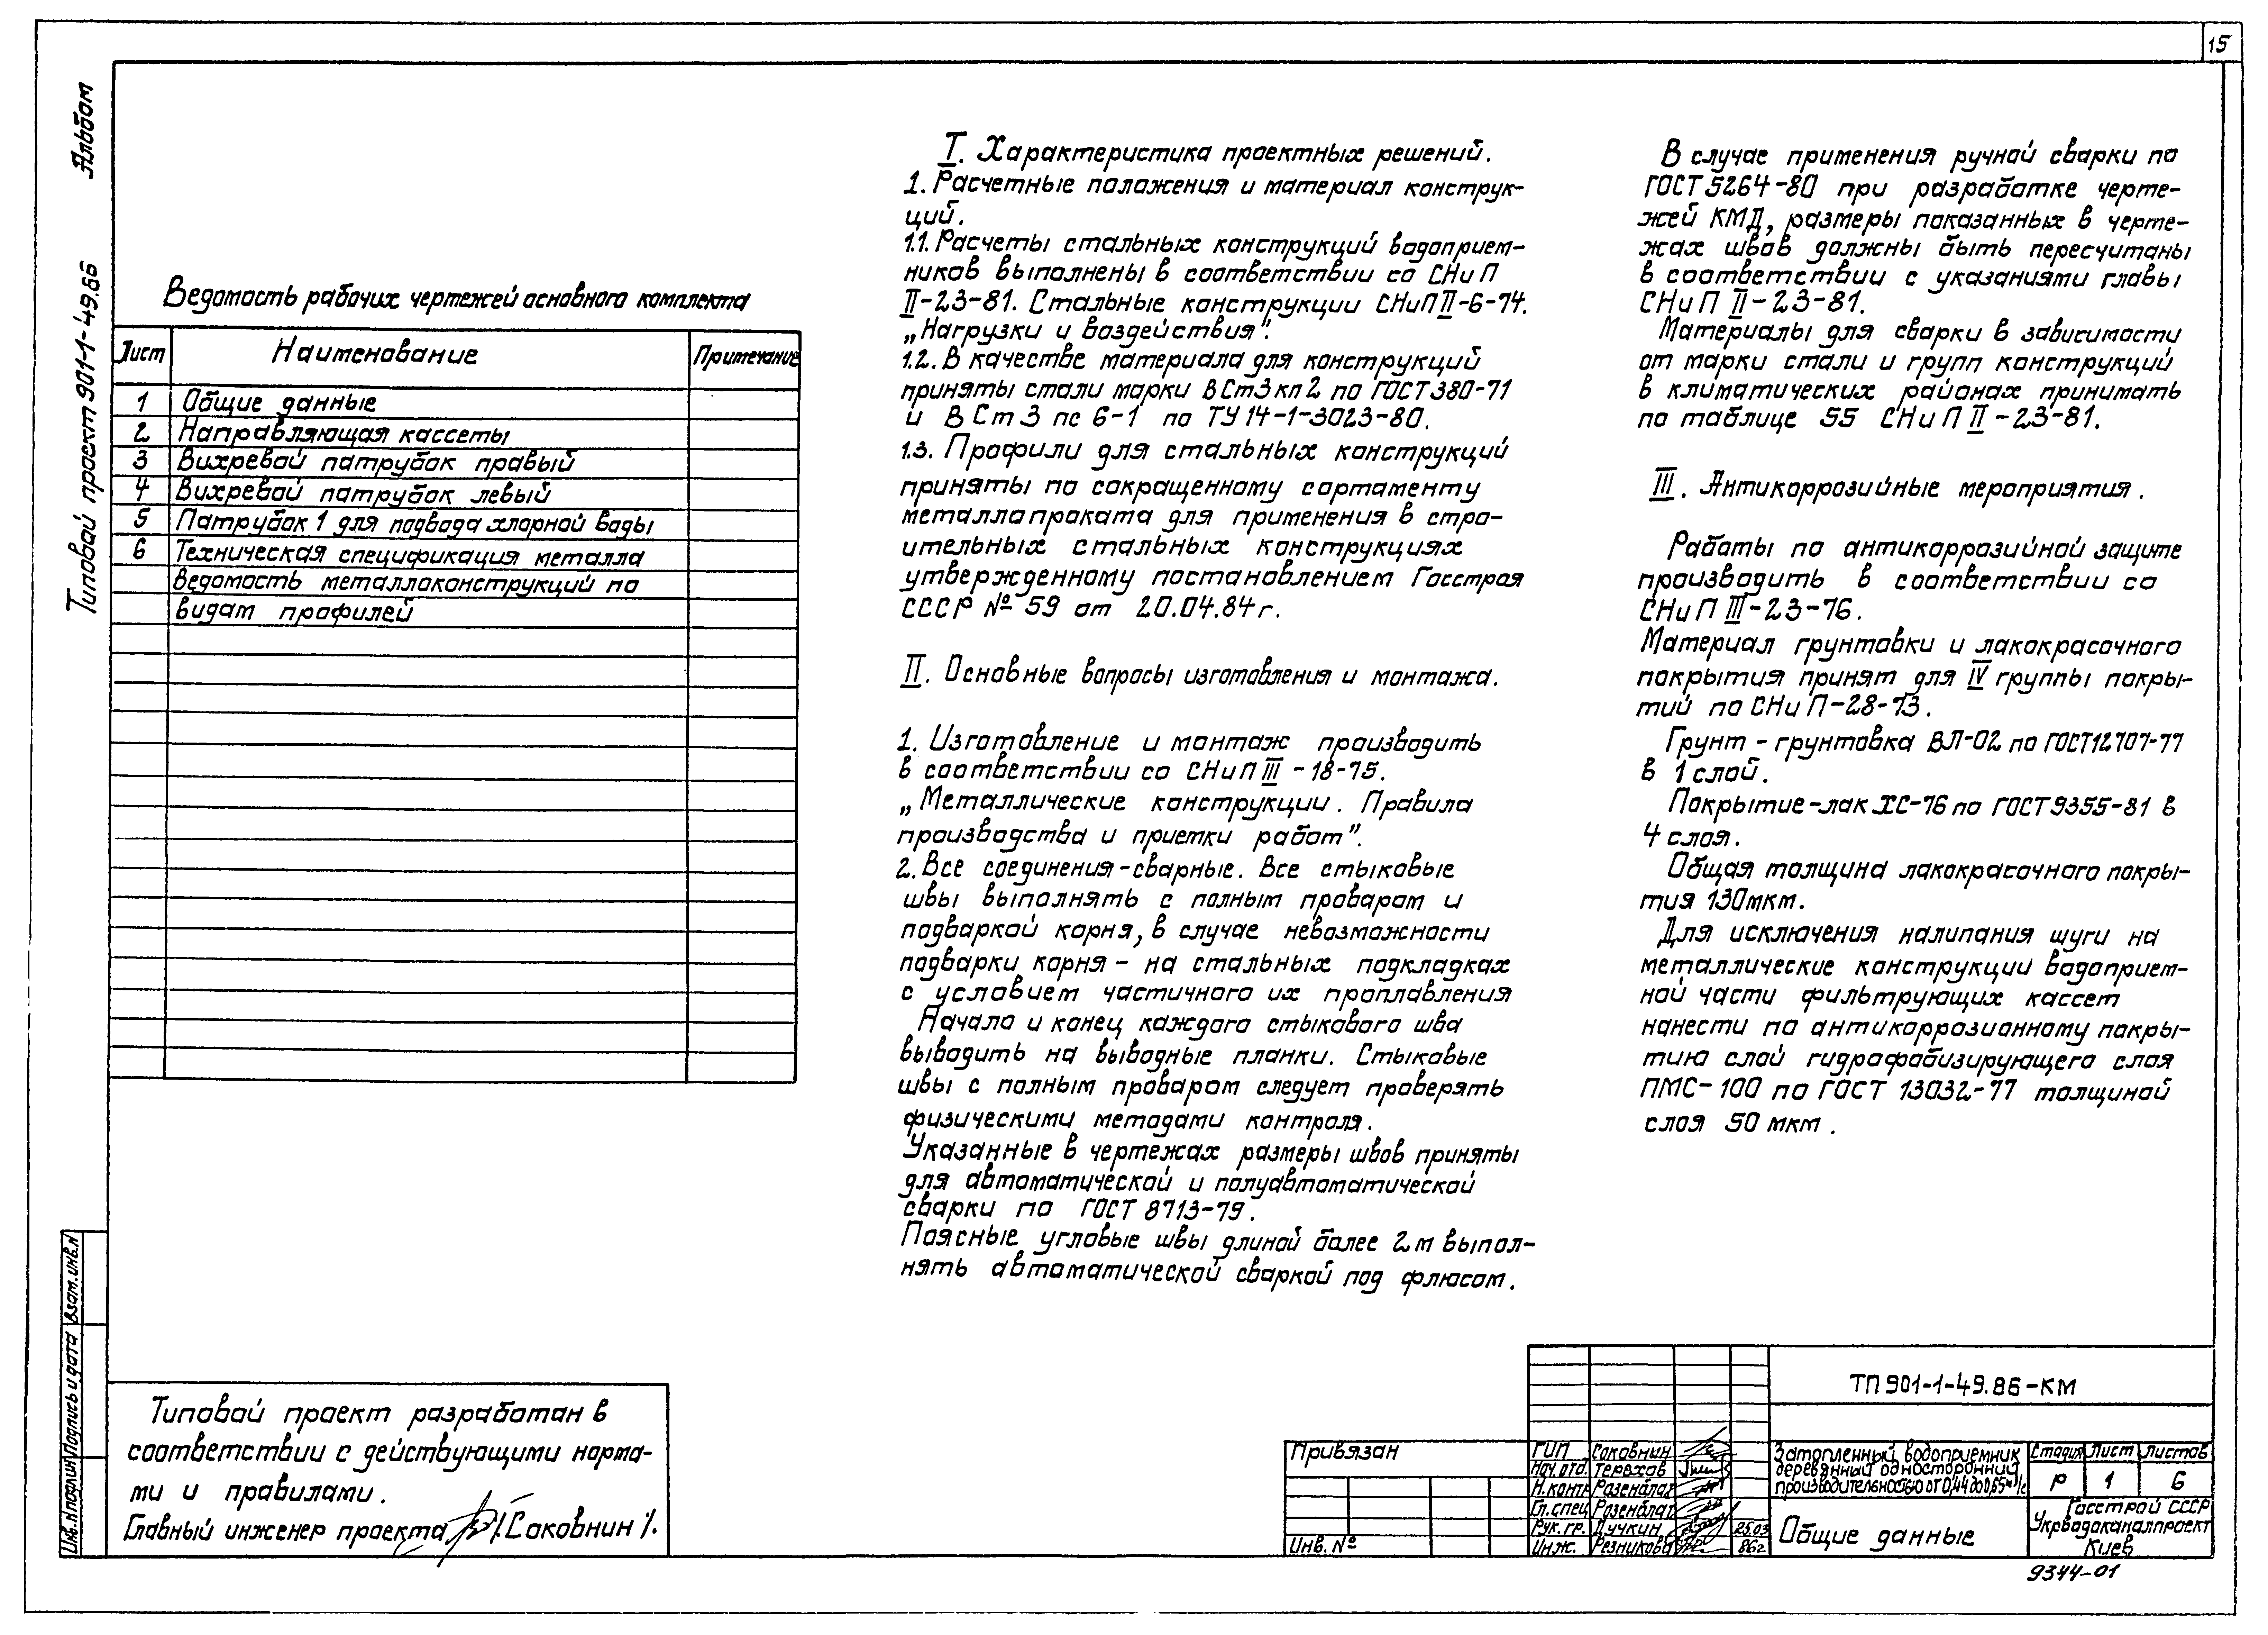 15
Альбом
Типовой проект 901-1-49.86
Ведомость рабочих чертежей основного комплекта
Лист Наименование Примечание
1 Общие данные
2 Направляющая кассеты
3 Вихревой патрубок правый
4 Вихревой патрубок левый
5 Патрубок 1 для подвода хлорной воды
6 Техническая спецификация металла
Ведомость металлоконструкций по
видам профилей
I. Характеристика проектных решений.
1. Расчетные положения и материал конструк-
ций.
1.1. Расчеты стальных конструкций водоприем-
ников выполнены в соответствии со СНиП
II-23-81. Стальные конструкции СНиП II-6-74.
„Нагрузки и воздействия".
1.2. В качестве материала для конструкций
приняты стали марки ВСт3кп2 по ГОСТ 380-71
и ВСт3 пс 6-1 по ТУ 14-1-3023-80.
1.3. Профили для стальных конструкций
приняты по сокращенному сортаменту
металлопроката для применения в стро-
ительных стальных конструкциях
утвержденному постановлением Госстроя
СССР № 59 от 20.04.84г.
II. Основные вопросы изготовления и монтажа.
1. Изготовление и монтаж производить
в соответствии со СНиП III-18-75.
„Металлические конструкции. Правила
производства и приемки работ".
2. Все соединения-сварные. Все стыковые
швы выполнять с полным проваром и
подваркой корня, в случае невозможности
подварки корня - на стальных подкладках
с условием частичного их проплавления
Начало и конец каждого стыкового шва
выводить на выводные планки. Стыковые
швы с полным проваром следует проверять
физическими методами контроля.
Указанные в чертежах размеры швов приняты
для автоматической и полуавтоматической
сварки по ГОСТ 8713-79.
Поясные угловые швы длиной более 2м выпол-
нять автоматической сваркой под флюсом.
В случае применения ручной сварки по
ГОСТ 5264-80 при разработке черте-
жей КМД, размеры показанных в черте-
жах швов должны быть пересчитаны
в соответствии с указаниями главы
СНиП II-23-81.
Материалы для сварки в зависимости
от марки стали и групп конструкций
в климатических районах принимать
по таблице 55 СНиП II-23-81.
III. Антикоррозийные мероприятия.
Работы по антикоррозийной защите
производить в соответствии со
СНиП III-23-76.
Материал грунтовки и лакокрасочного
покрытия принят для IV группы покры-
тий по СНиП-28-73.
Грунт - грунтовка ВЛ-02 по ГОСТ 12707-77
в 1 слой.
Покрытие-лак ХС-76 по ГОСТ 9355-81 в
4 слоя.
Общая толщина лакокрасочного покры-
тия 130мкм.
Для исключения налипания шуги на
металлические конструкции водоприем-
ной части фильтрующих кассет
нанести по антикоррозионному покры-
тию слой гидрофобизирующего слоя
ПМС-100 по ГОСТ 13032-77 толщиной
слоя 50 мкм.
Взам.инв.N
Подпись и дата
Инв.N подлин
Типовой проект разработан в
соответствии с действующими норма-
ми и правилами.
Главный инженер проекта /Соковнин/.
Привязан
Инв. №
ГИП Соковнин
Нач.отд. Терехов
Н.контр Розенблат
Гл.спец Розенблат
Рук.гр. Дучкин 25.03
Инж. Резникова 86г
ТП 901-1-49.86-КМ
Затопленный водоприемник
деревянный односторонний
производительностью от 0,44 до 0,65 м³/с
Стадия Лист Листов
Р 1 6
Общие данные
Госстрой СССР
Укрводоканалпроект
Киев
9344-01